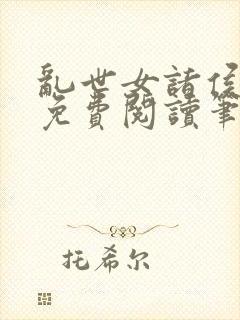 亂世女諸侯
免費閱讀筆
托希尔